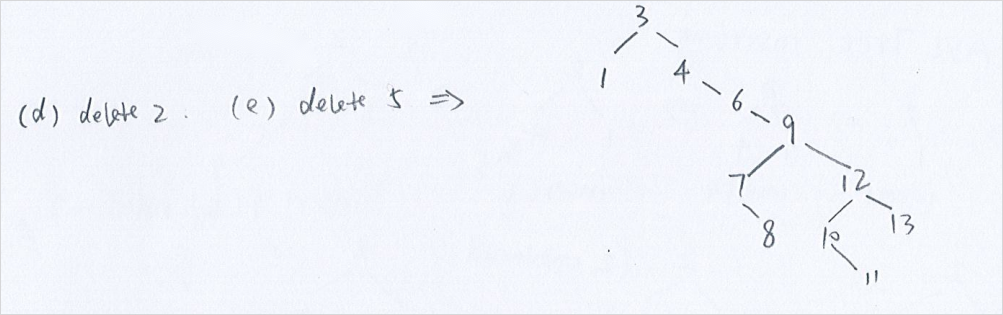 3
1 4
(d) delete 2. (e) delete 5 ⇒ 6
9
7 12
8 10 13
11